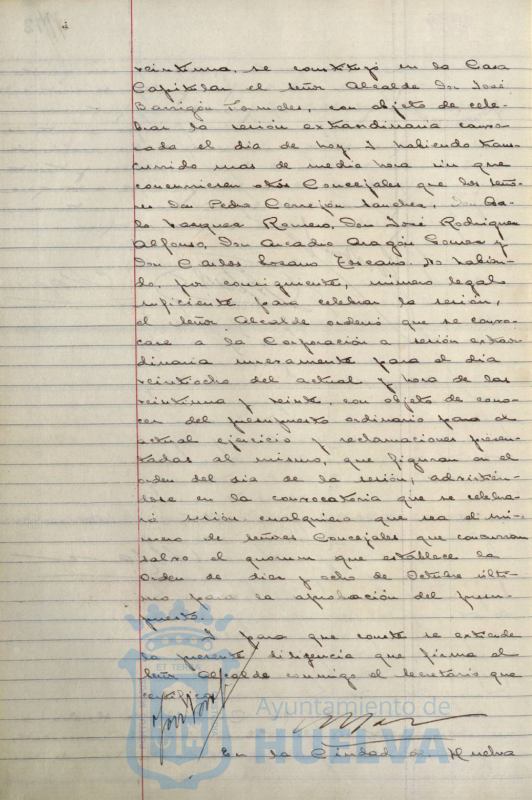 veintiuna, se constituyó en la Casa
Capitular el señor Alcalde Don José
Barrigón Fornales, con objeto de cele-
brar la sesión extraordinaria convo-
cada el día de hoy. Y habiendo trans-
currido mas de media hora sin que
concurriesen otros Concejales que los seño-
res Don Pedro Cerrejón Sánchez, Don Pa-
blo Vazquez Romero, Don José Rodriguez
Alfonso, Don Arcadio Aragón Gomez y
Don Carlos Lozano Toscano. No habién-
do, por consiguiente, número legal
suficiente para celebrar la sesión,
el señor Alcalde ordenó que se convo-
case a la Corporación a sesión extraor-
dinaria nuevamente para el día
veintiocho del actual y hora de las
veintiuna y veinte, con objeto de cono-
cer del presupuesto ordinario para el
actual ejercicio y reclamaciones presen-
tadas al mismo, que figuran en el
orden del día de la sesión, advirtién-
dose en la convocatoria que se celebra-
rá sesión cualquiera que sea el nú-
mero de señores Concejales que concurran
salvo el quorum que establece la
Orden de diez y ocho de Octubre últi-
mo para la aprobación del presu-
puesto.
Y para que conste se extiende
la presente diligencia que firma el
señor Alcalde conmigo el Secretario que
certifico.
ET TERRAE
Ayuntamiento de
HUELVA
En la Ciudad de Huelva